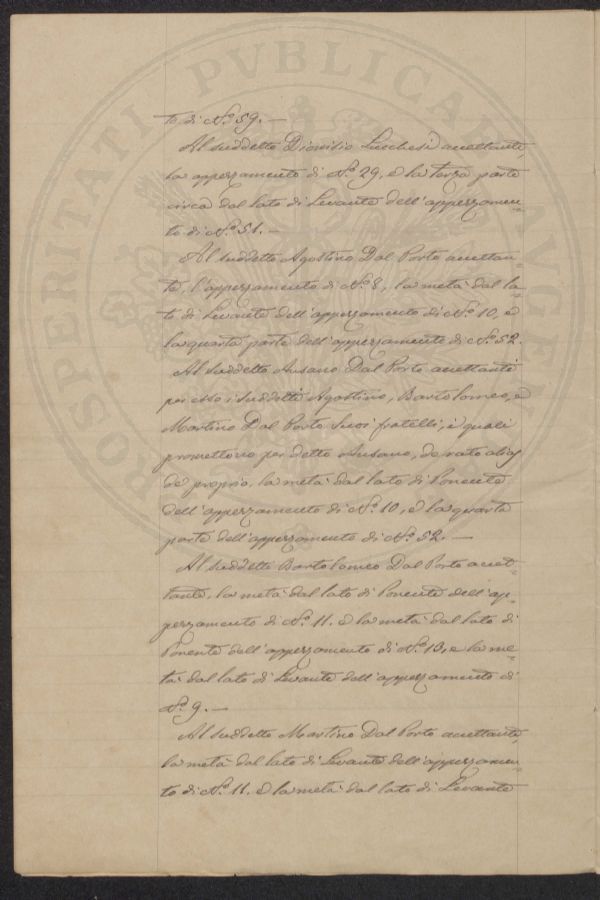 to di N.º 59. —
Al suddetto Dionisio Luchesi accettante,
la apperzamento di N.º 29, e la terza parte
circa dal lato di Levante dell'apperzamen-
to di N.º 51. —
Al suddetto Agostino Dal Porto accettan-
te, l'apperzamento di N.º 8, la metà dal la-
to di Levante dell'apperzamento di N.º 10, e
la quarta parte dell'apperzamento di N.º 52.
Al suddetto Ausano Dal Porto accettanti
per esso i suddetti Agostino, Bartolomeo, e
Martino Dal Porto suoi fratelli, i quali
promettono per detto Ausano, de rato alias
de proprio, la metà dal lato di Ponente
dell'apperzamento di N.º 10, e la quarta
parte dell'apperzamento di N.º 52. —
Al suddetto Bartolomeo Dal Porto accet-
tante, la metà dal lato di Ponente dell'ap-
perzamento di N.º 11. e la metà dal lato di
Ponente dell'apperzamento di N.º 13, e la me-
tà dal lato di Levante dell'apperzamento di
N.º 9. —
Al suddetto Martino Dal Porto accettante,
la metà dal lato di Levante dell'apperzamen-
to di N.º 11. e la metà dal lato di Levante
PROSPERITATI PVBLICAE AVGENDAE